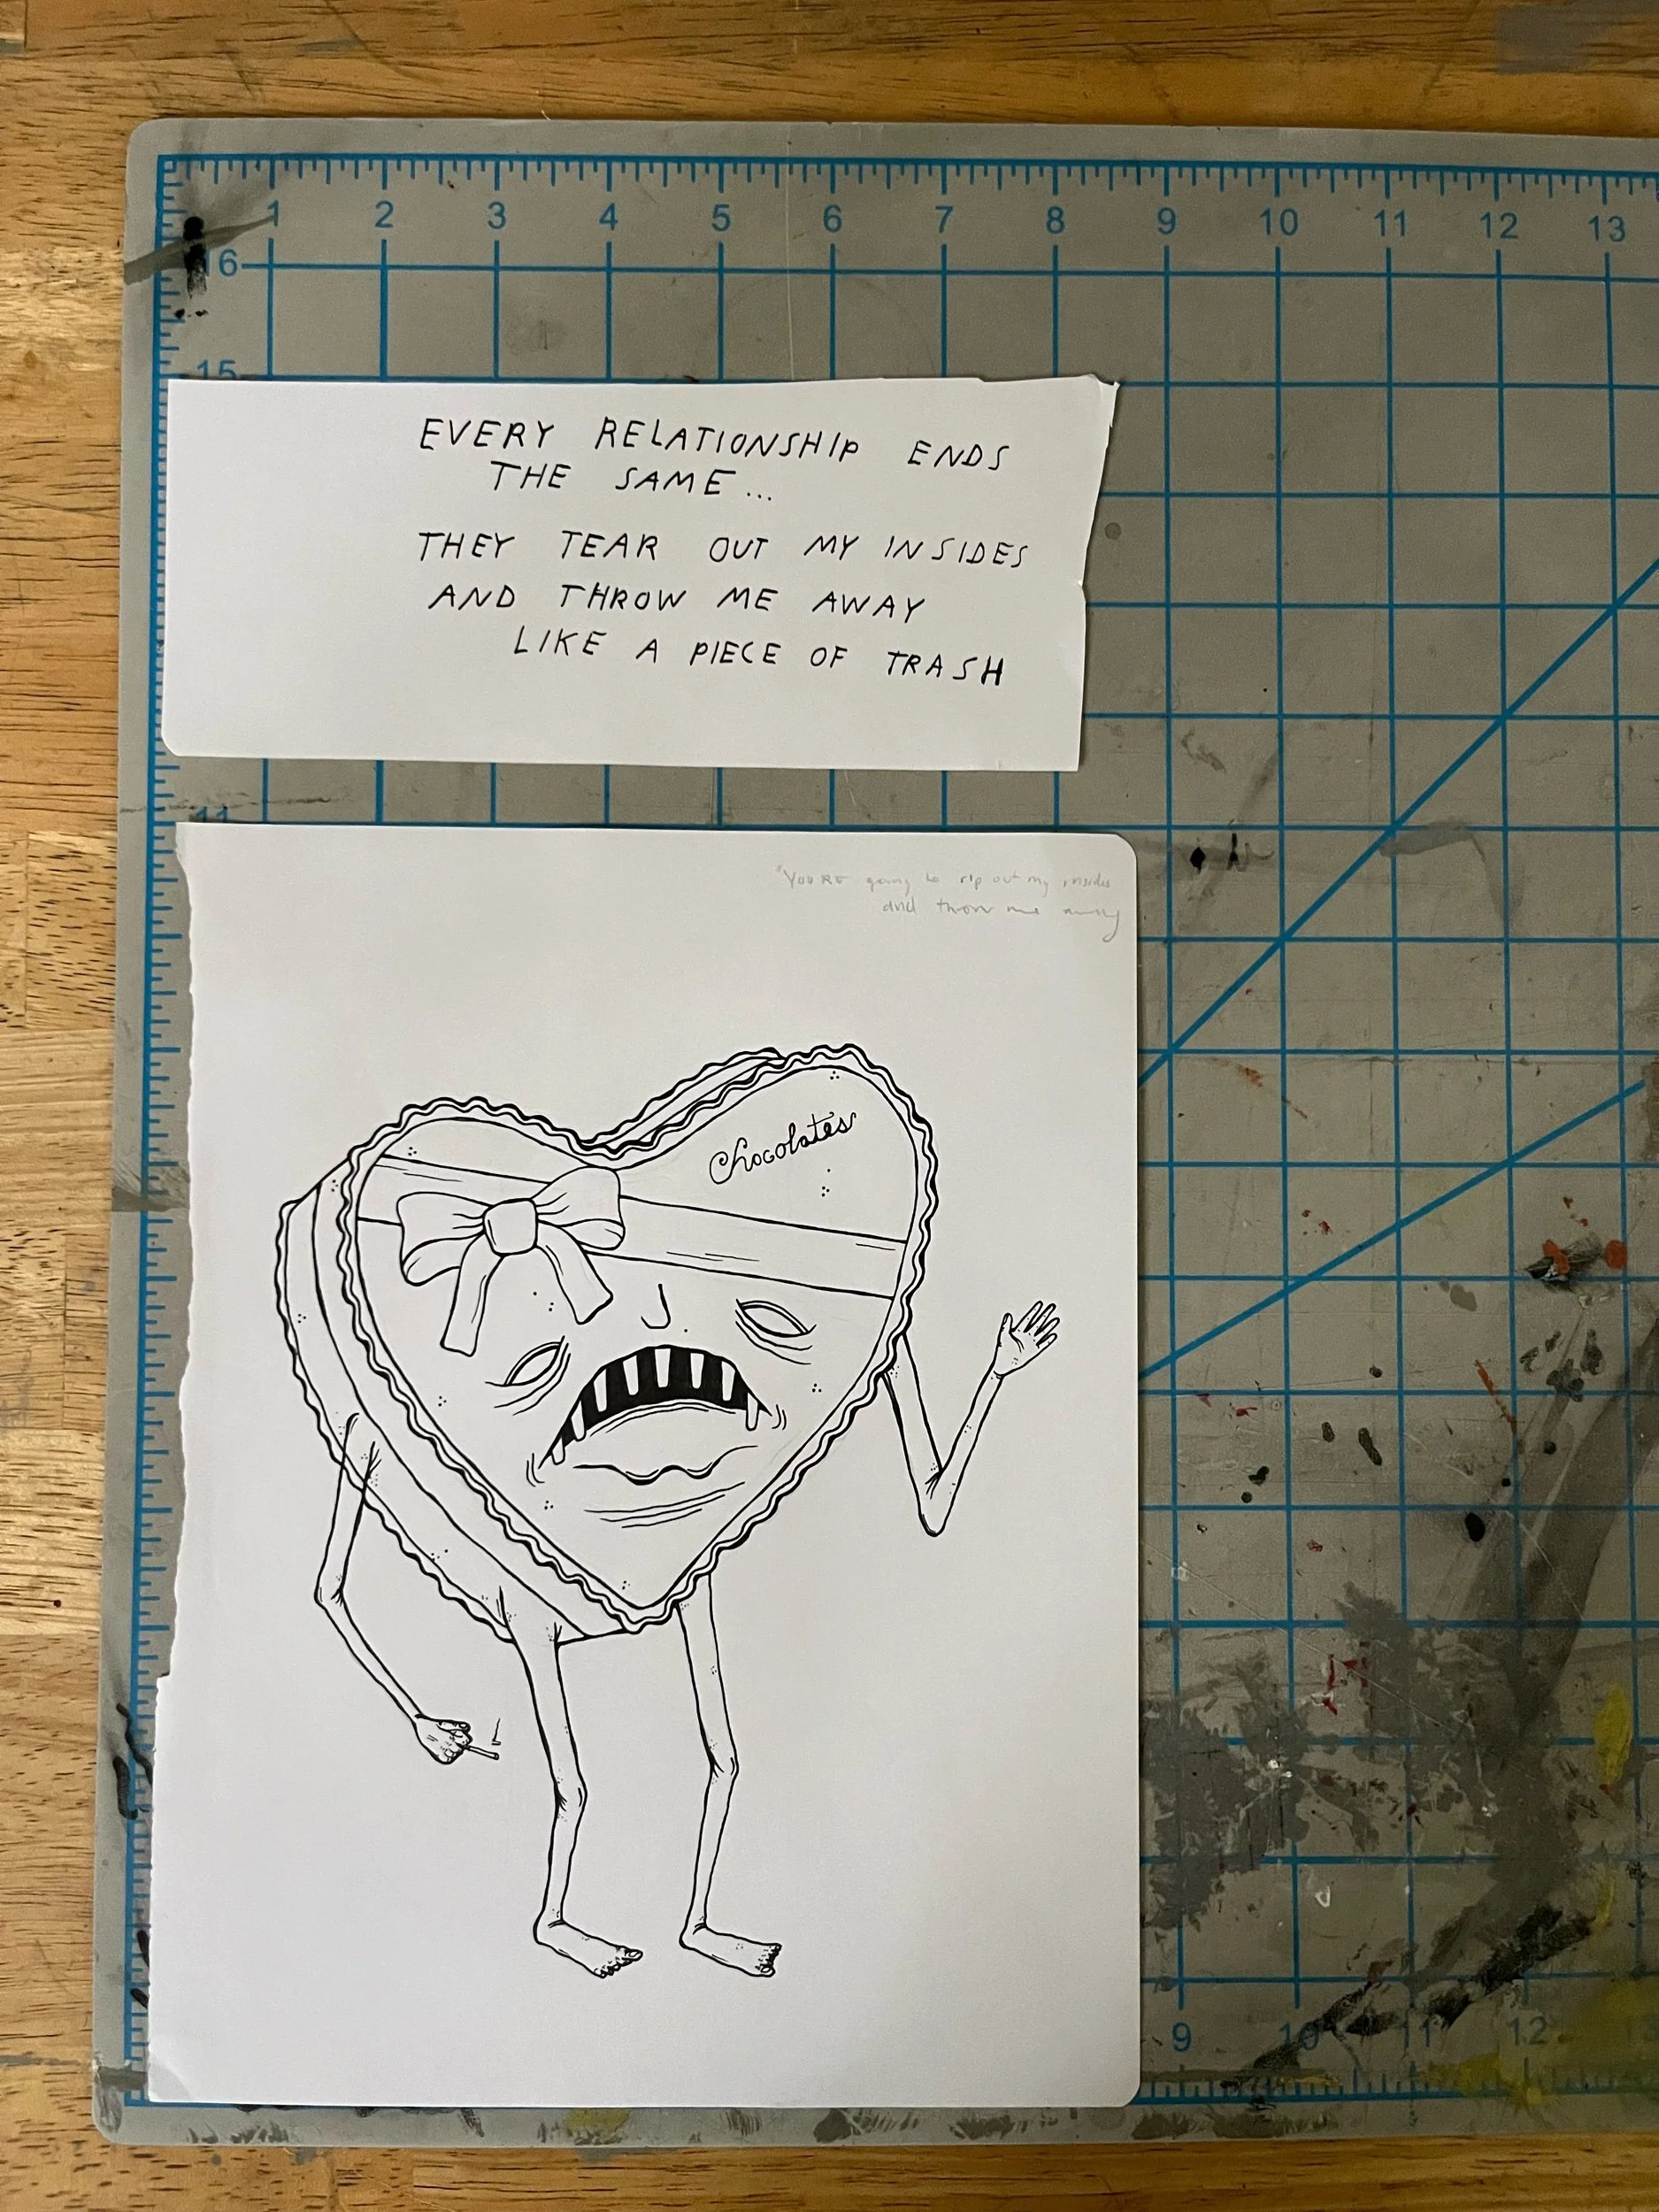 1 2 3 4 5 6 7 8 9 10 11 12 13
16
15
EVERY RELATIONSHIP ENDS
THE SAME...
THEY TEAR OUT MY INSIDES
AND THROW ME AWAY
LIKE A PIECE OF TRASH
11
"YOU'RE going to rip out my insides
and throw me away
Chocolates
9 10 11 12